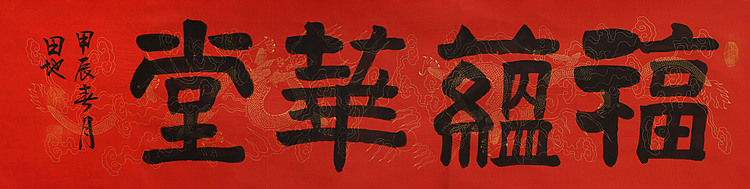 福蘊華堂
甲辰春月
田地